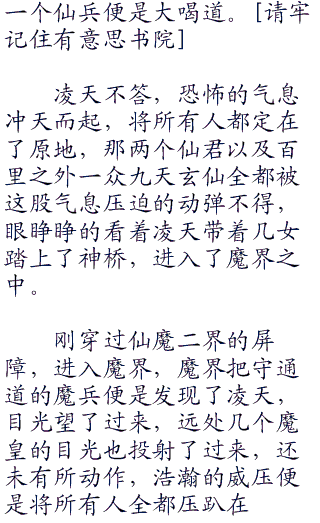 一个仙兵便是大喝道。[请牢
记住有意思书院]
凌天不答，恐怖的气息
冲天而起，将所有人都定在
了原地，那两个仙君以及百
里之外一众九天玄仙全都被
这股气息压迫的动弹不得，
眼睁睁的看着凌天带着几女
踏上了神桥，进入了魔界之
中。
刚穿过仙魔二界的屏
障，进入魔界，魔界把守通
道的魔兵便是发现了凌天，
目光望了过来，远处几个魔
皇的目光也投射了过来，还
未有所动作，浩瀚的威压便
是将所有人全都压趴在